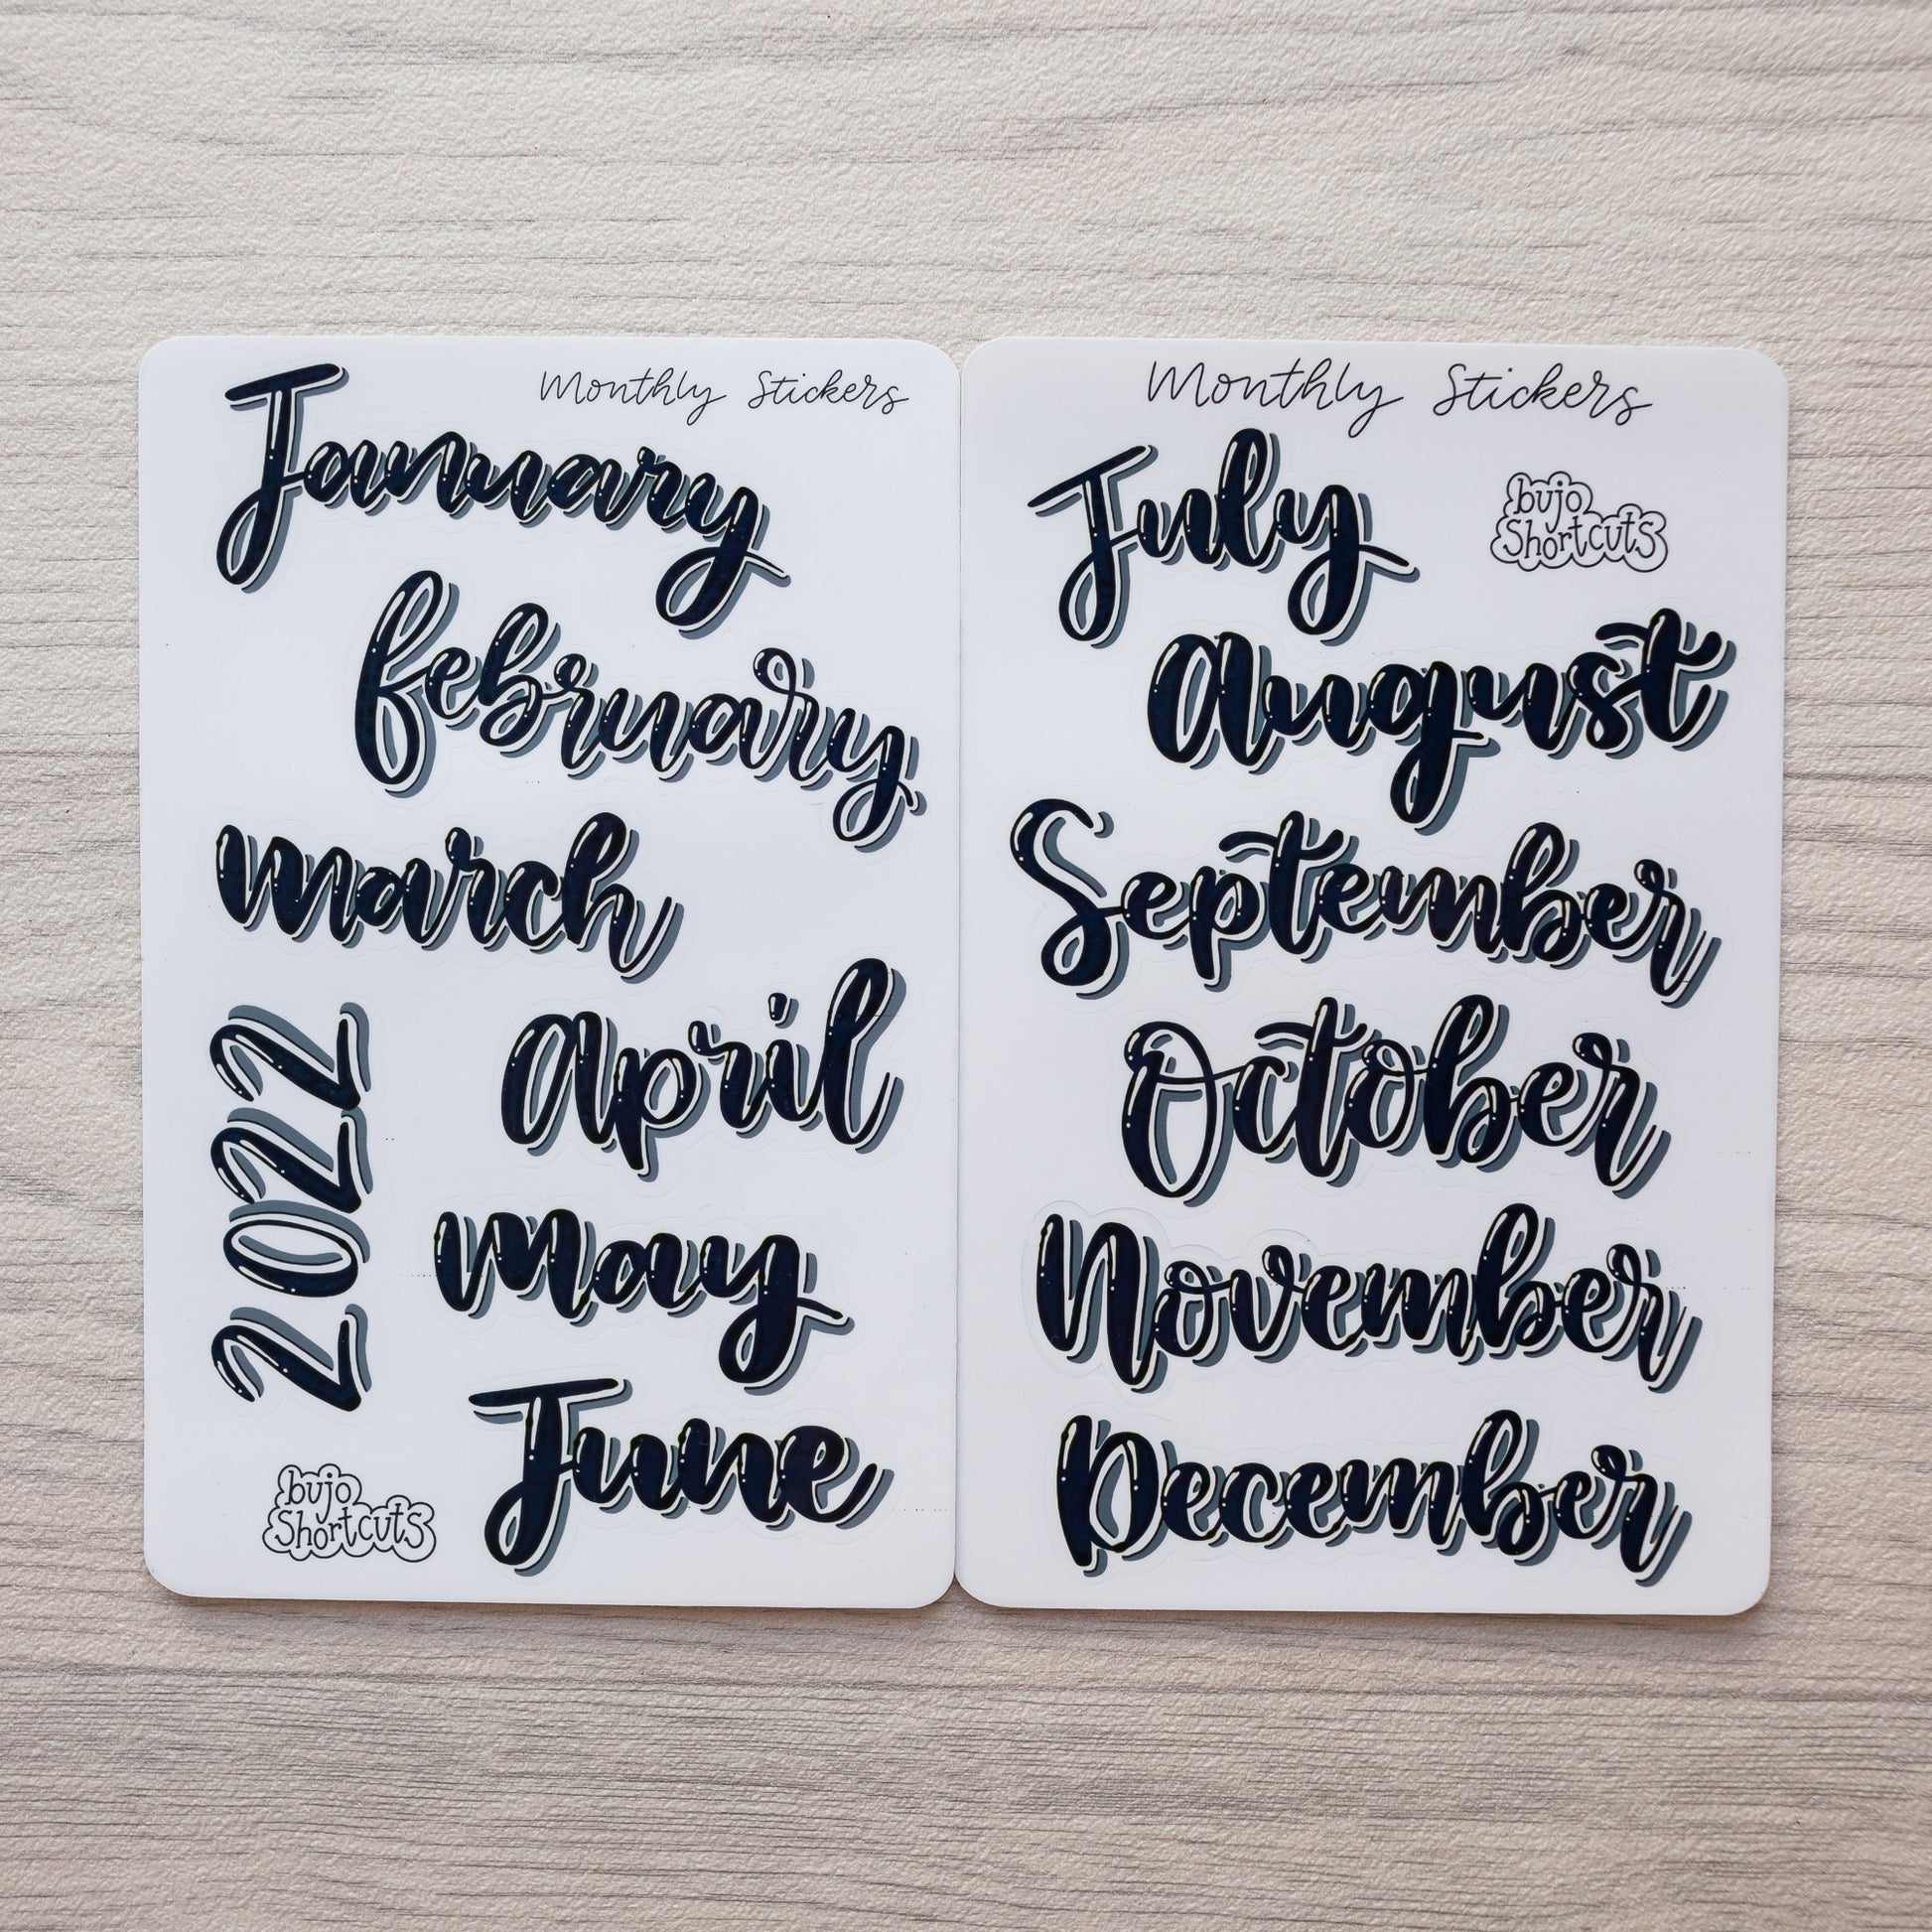 Monthly Stickers
January
february
march
april
2022
may
June
bujo
Shortcuts
Monthly Stickers
July
bujo
Shortcuts
august
September
October
November
December